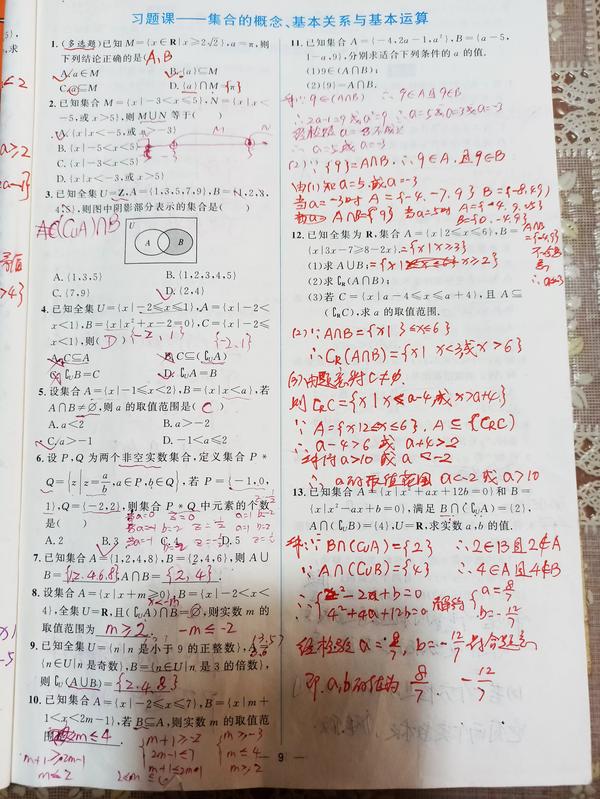 习题课——集合的概念、基本关系与基本运算
1.(多选题)已知M={x∈R|x≥2√2},a=π,则
下列结论正确的是( A,B
A.a∈M B.{a}⊆M
C.a⊆M D.{a}∩M={π}
2.已知集合M={x|-3<x≤5},N={x|x<
-5,或x>5},则M∪N等于( )
A.{x|x<-5,或x>-3}
B.{x|-5<x<5}
C.{x|-3<x<5}
D.{x|x<-3,或x>5}
3.已知全集U=Z,A={1,3,5,7,9},B={1,2,3,
4,5},则图中阴影部分表示的集合是( )
(CuA)∩B
U
A B
A.{1,3,5} B.{1,2,3,4,5}
C.{7,9} D.{2,4}
4.已知全集U={x|-2≤x≤1},A={x|-2<
x<1},B={x|x²+x-2=0},C={x|-2≤
x<1},则( D ) {-2,1}
{-2,1}
A.C⊆A B.C⊆(∁UA)
C.∁UB=C D.∁UA=B
5.设集合A={x|-1≤x<2},B={x|x<a},若
A∩B≠∅,则a的取值范围是( C )
A.a<2 B.a>-2
C.a>-1 D.-1<a≤2
6.设P,Q为两个非空实数集合,定义集合P*
Q={z|z=a/b,a∈P,b∈Q},若P={-1,0,
1},Q={-2,2},则集合P*Q中元素的个数
是( )
A.2 B.3 C.4 D.5
7.已知集合A={1,2,4,8},B={2,4,6},则A∪
B={1,2,4,6,8} A∩B={2,4}.
8.设集合A={x|x+m≥0},B={x|-2<x<
4},全集U=R,且(∁UA)∩B=∅,则实数m的
取值范围为 m≥2. -m≤-2
9.已知全集U={n|n是小于9的正整数},A=
{n∈U|n是奇数},B={n∈U|n是3的倍数},
则∁U(A∪B)={2,4,8}
10.已知集合A={x|-2≤x≤7},B={x|m+
1<x<2m-1},若B⊆A,则实数m的取值范
围是 m≤4.
m+1≥2m-1
m≤2
2<m≤4
m+1≥-2
2m-1≤7
m+1<2m-1
m≥-3
m≤4
m>2
11.已知集合A={-4,2a-1,a²},B={a-5,
1-a,9},分别求适合下列条件的a的值.
(1)9∈(A∩B);
(2){9}=A∩B.
解:∵9∈(A∩B) ∴9∈A且9∈B
∴2a-1=9或a²=9 ∴a=5或a=3或a=-3
经检验a=3不成立
∴a=5或a=-3
(2)∵{9}=A∩B,∴9∈A,且9∈B
由(1)知a=5,或a=-3
当a=-3时A={-4,-7,9} B={-8,4,9}
A∩B={9} 当a=5时 A={-4,9,25}
B={0,-4,9}
A∩B
={-4,9}
∴a=-3
12.已知全集为R,集合A={x|2≤x≤6},B=
{x|3x-7≥8-2x}.={x|x≥3}
(1)求A∪B;={x|x≥2}
(2)求∁R(A∩B);
(3)若C={x|a-4≤x≤a+4},且A⊆
(∁RC),求a的取值范围.
(2)∵A∩B={x|3≤x≤6}
∴CR(A∩B)={x|x<3或x>6}
(3)由题意知C≠∅.
则CRC={x|x<a-4或x>a+4}
∵A={x|2≤x≤6},A⊆(CRC)
∴a-4>6或a+4>2
解得a>10或a<-2
∴a的取值范围a<-2或a>10
13.已知集合A={x|x²+ax+12b=0}和B=
{x|x²-ax+b=0},满足B∩(∁UA)={2},
A∩(∁UB)={4},U=R,求实数a,b的值.
解:∵B∩(CuA)={2} ∴2∈B且2∉A
∵A∩(CuB)={4} ∴4∈A且4∉B
∴{2²-2a+b=0
4²+4a+12b=0 解得{a=8/7
b=-12/7
经检验a=8/7,b=-12/7符合题意
即a,b的值为8/7 -12/7
9